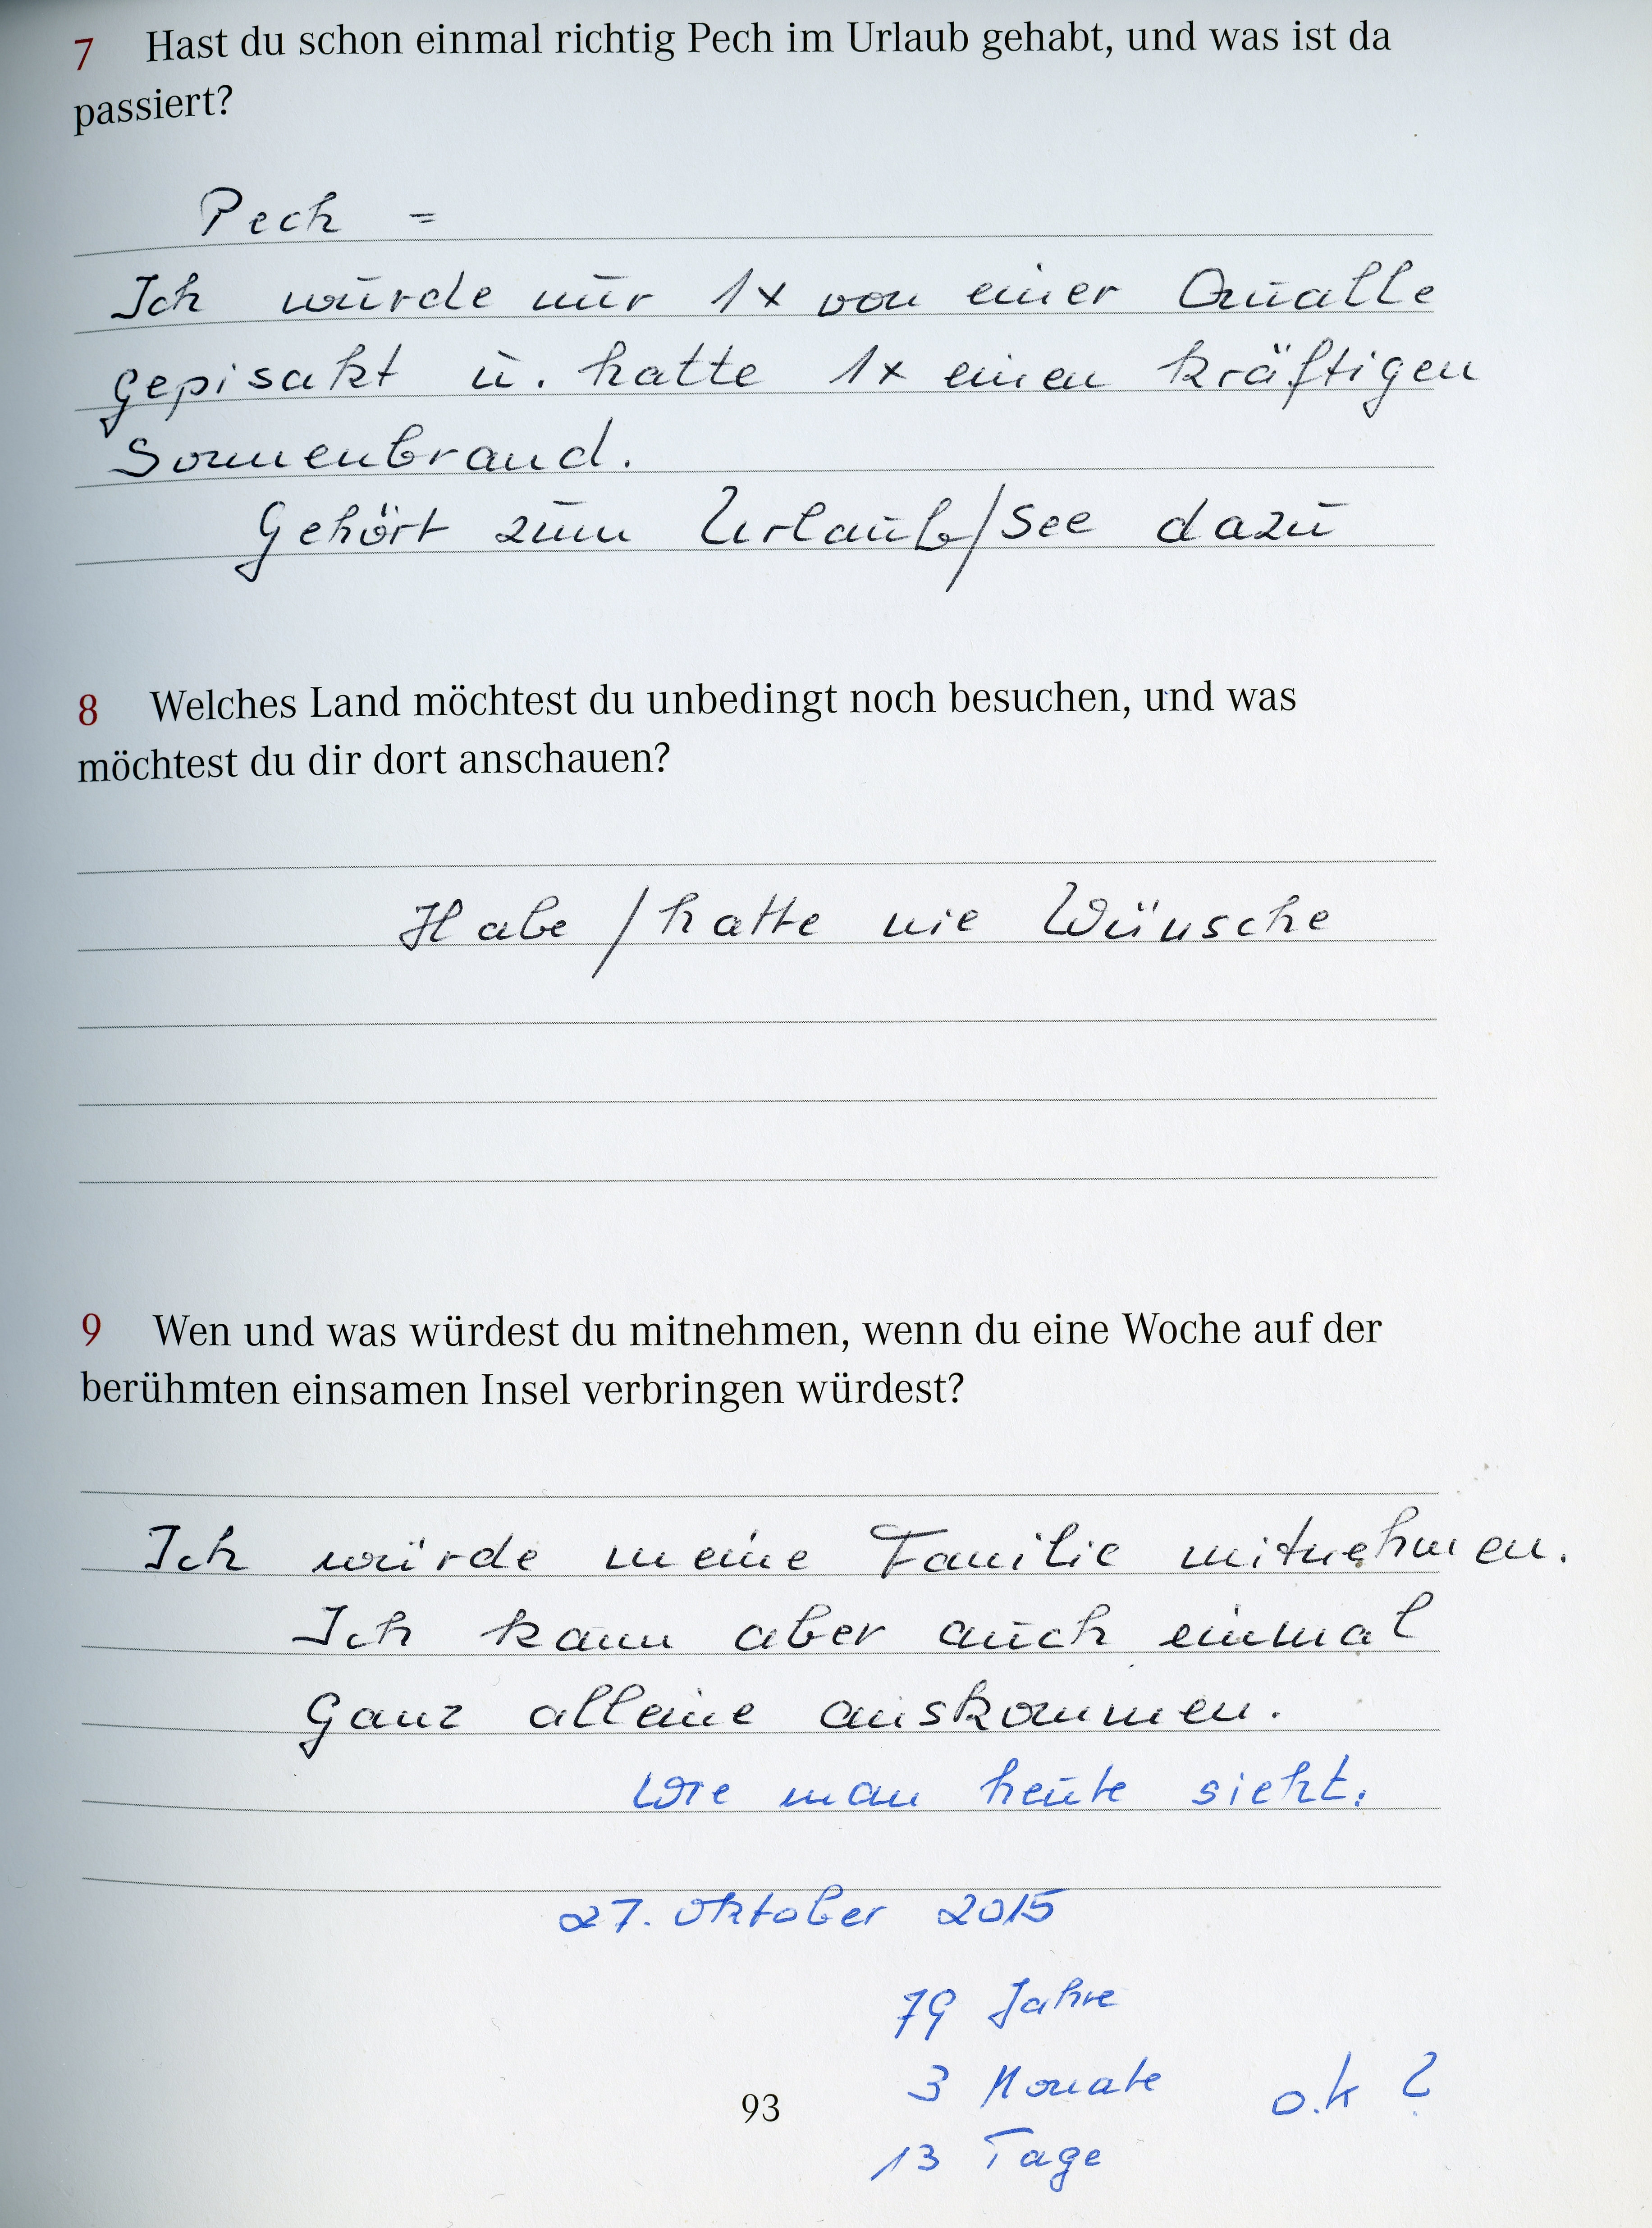 7 Hast du schon einmal richtig Pech im Urlaub gehabt, und was ist da
passiert?
Pech =
Ich wurde nur 1x von einer Qualle
gepisakt u. hatte 1x einen kräftigen
Sonnenbrand.
Gehört zum Urlaub/See dazu
8 Welches Land möchtest du unbedingt noch besuchen, und was
möchtest du dir dort anschauen?
Habe / hatte nie Wünsche
9 Wen und was würdest du mitnehmen, wenn du eine Woche auf der
berühmten einsamen Insel verbringen würdest?
Ich würde meine Familie mitnehmen.
Ich kann aber auch einmal
Ganz alleine auskommen.
Wie man heute sieht.
27. Oktober 2015
79 Jahre
3 Monate o.k ?
93
13 Tage